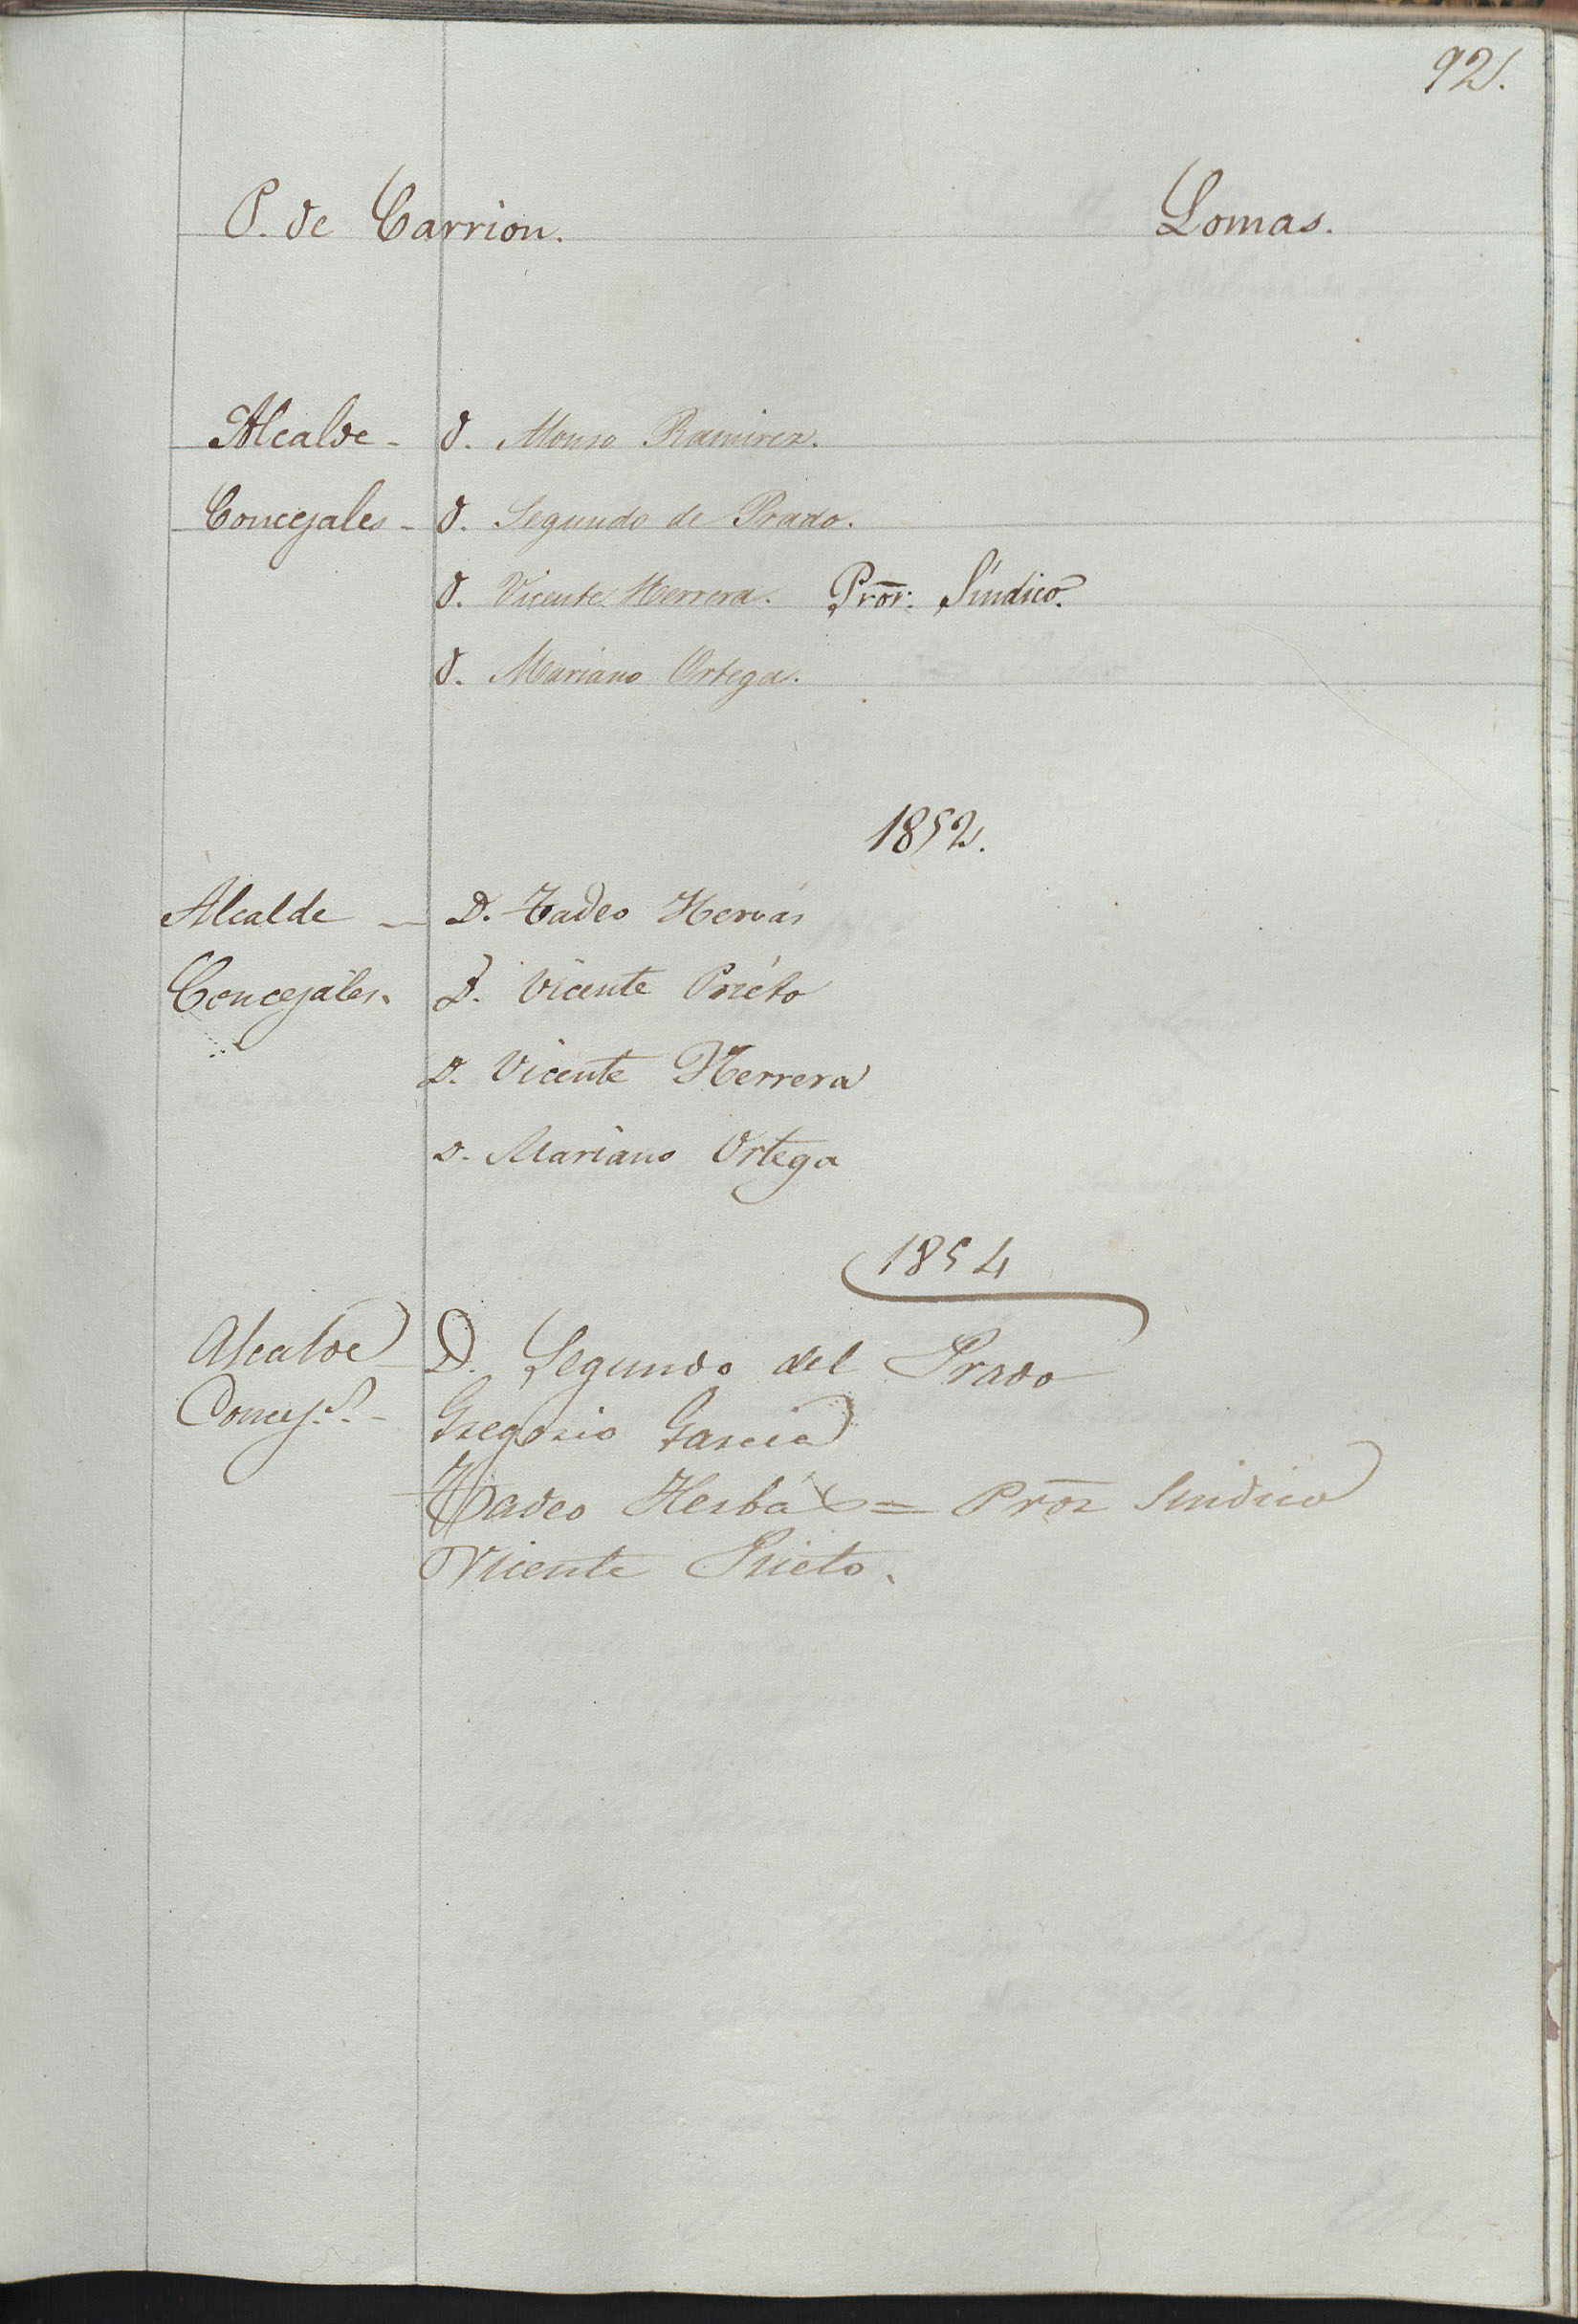 92.
P. de Carrion. Lomas.
Alcalde - D. Alonso Ramirez.
Concejales - D. Segundo de Prado.
D. Vicente Herrera. Pror. Síndico.
D. Mariano Ortega.
1852.
Alcalde - D. Tadeo Hervás
Concejales. D. Vicente Prieto
D. Vicente Herrera
D. Mariano Ortega
1854
Alcalde - D. Segundo del Prado
Concej.s - Gregorio Garcia
Tadeo Herbás = Pror Sindico
Vicente Prieto.